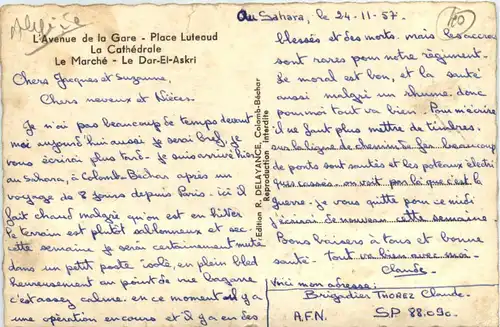 Algérie
L'Avenue de la Gare - Place Luteaud
La Cathédrale
Le Marché - Le Dar-El-Askri
Chers Jacques et Suzanne,
Chers neveux et Nièces.
Je n'ai pas beaucoup de temps devant
moi aujourd'hui aussi je serai bref, je
vous écrirai plus tard. Je suis arrivé hier
au Sahara, à Colomb Bechar après un
voyage de 8 jours depuis Paris. ici il
fait chaud malgré qu'on est en hiver
le terrain est plutôt sablonneux et sec.
cette semaine je serai certainement muté
dans un petit poste isolé, en plein bled
heureusement au point de vue bagarre
c'est assez calme. en ce moment il y a
une opération en cours et il y a eu des
Edition R. DELAYANCE, Colomb-Béchar
Reproduction Interdite
Au Sahara, le 24-11-57.
blessés et des morts. mais les accrocs
sont rares pour notre régiment.
Le moral est bon, et la santé
aussi malgré un rhume. donc
pour moi tout va bien. Pour m'écrire
il ne faut plus mettre de timbres.
sur la ligne de chemin de fer beaucoup
de ponts sont sautés et les poteaux électri
ques cassés. on voit par là que c'est la
guerre. je vous quitte pour ce midi
j'écrirai de nouveau cette semaine
Bons baisers à tous et bonne
santé. tout va bien avec moi.
Claude.
Voici mon adresse:
Brigadier THOREZ Claude.
A.F.N. SP 88.090.